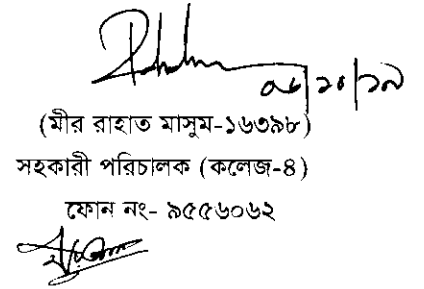 ০৮/১০/১৯
(মীর রাহাত মাসুম-১৬৩৯৮)
সহকারী পরিচালক (কলেজ-৪)
ফোন নং- ৯৫৫৬০৬২